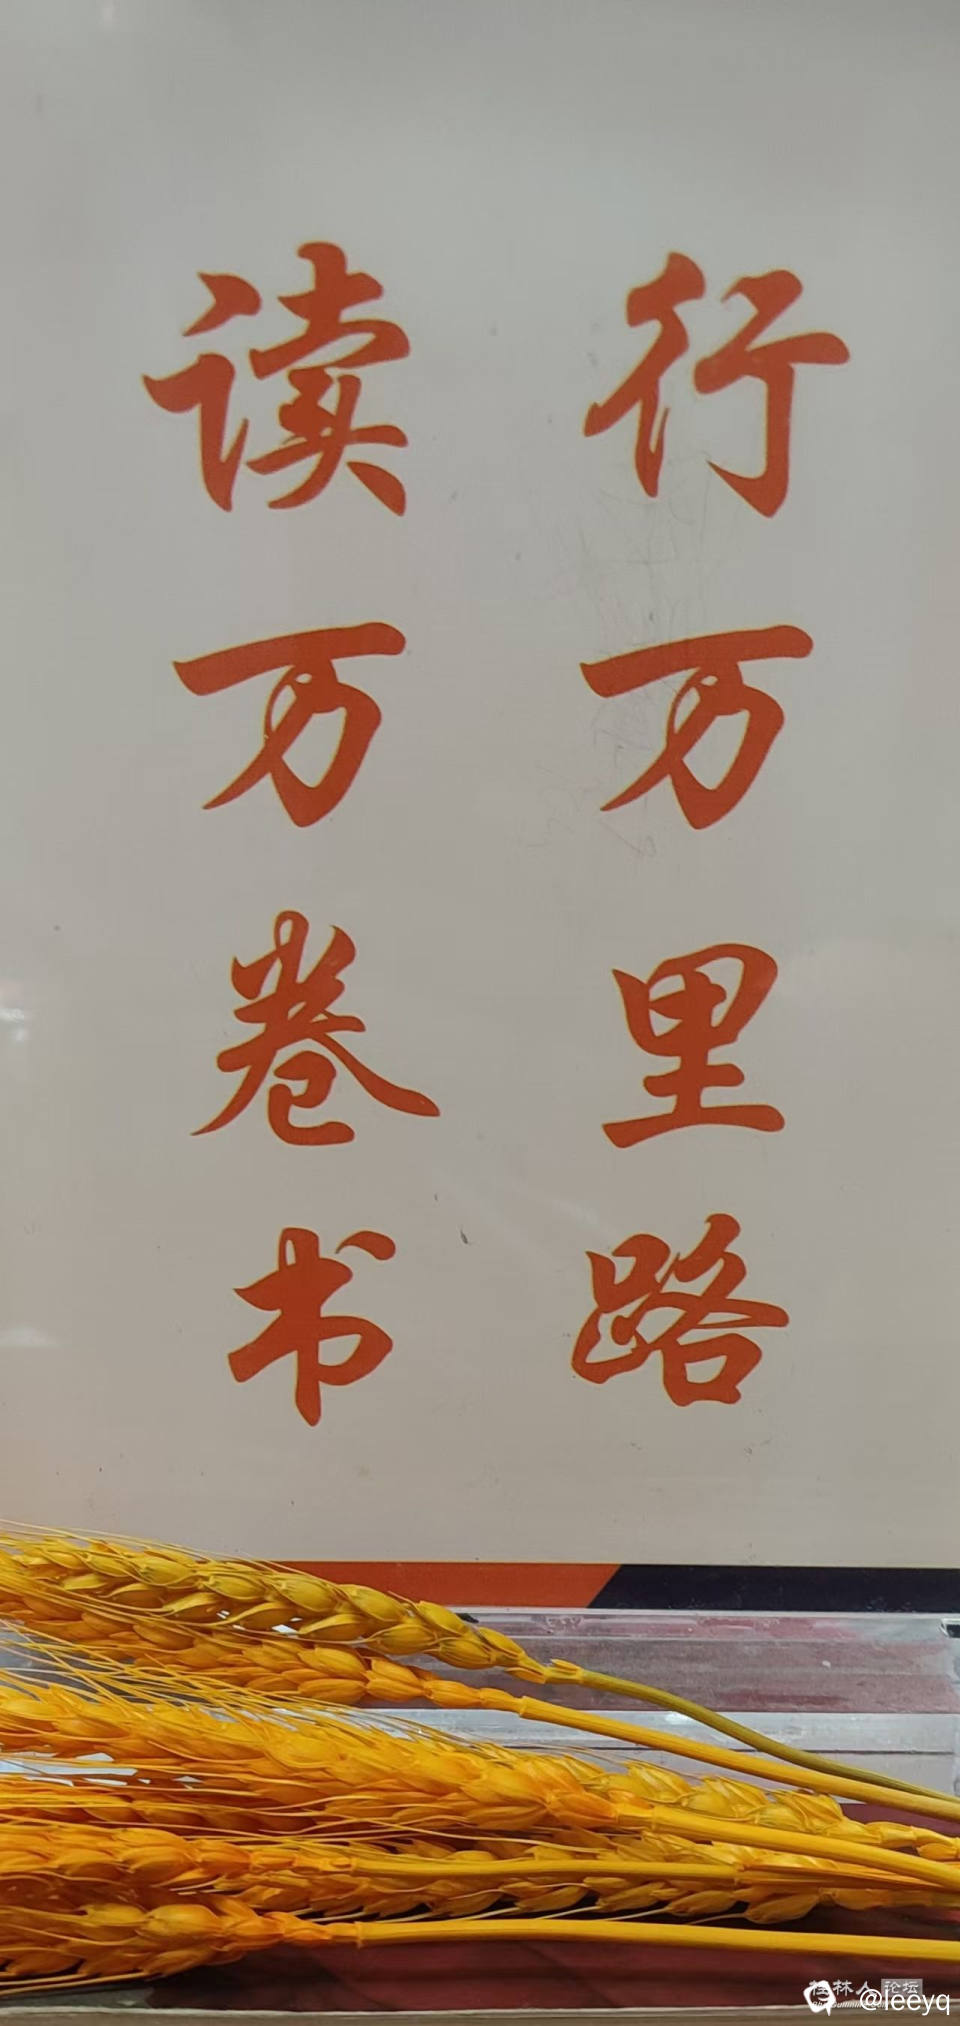 读万卷书
行万里路
桂林人论坛
@leeyq